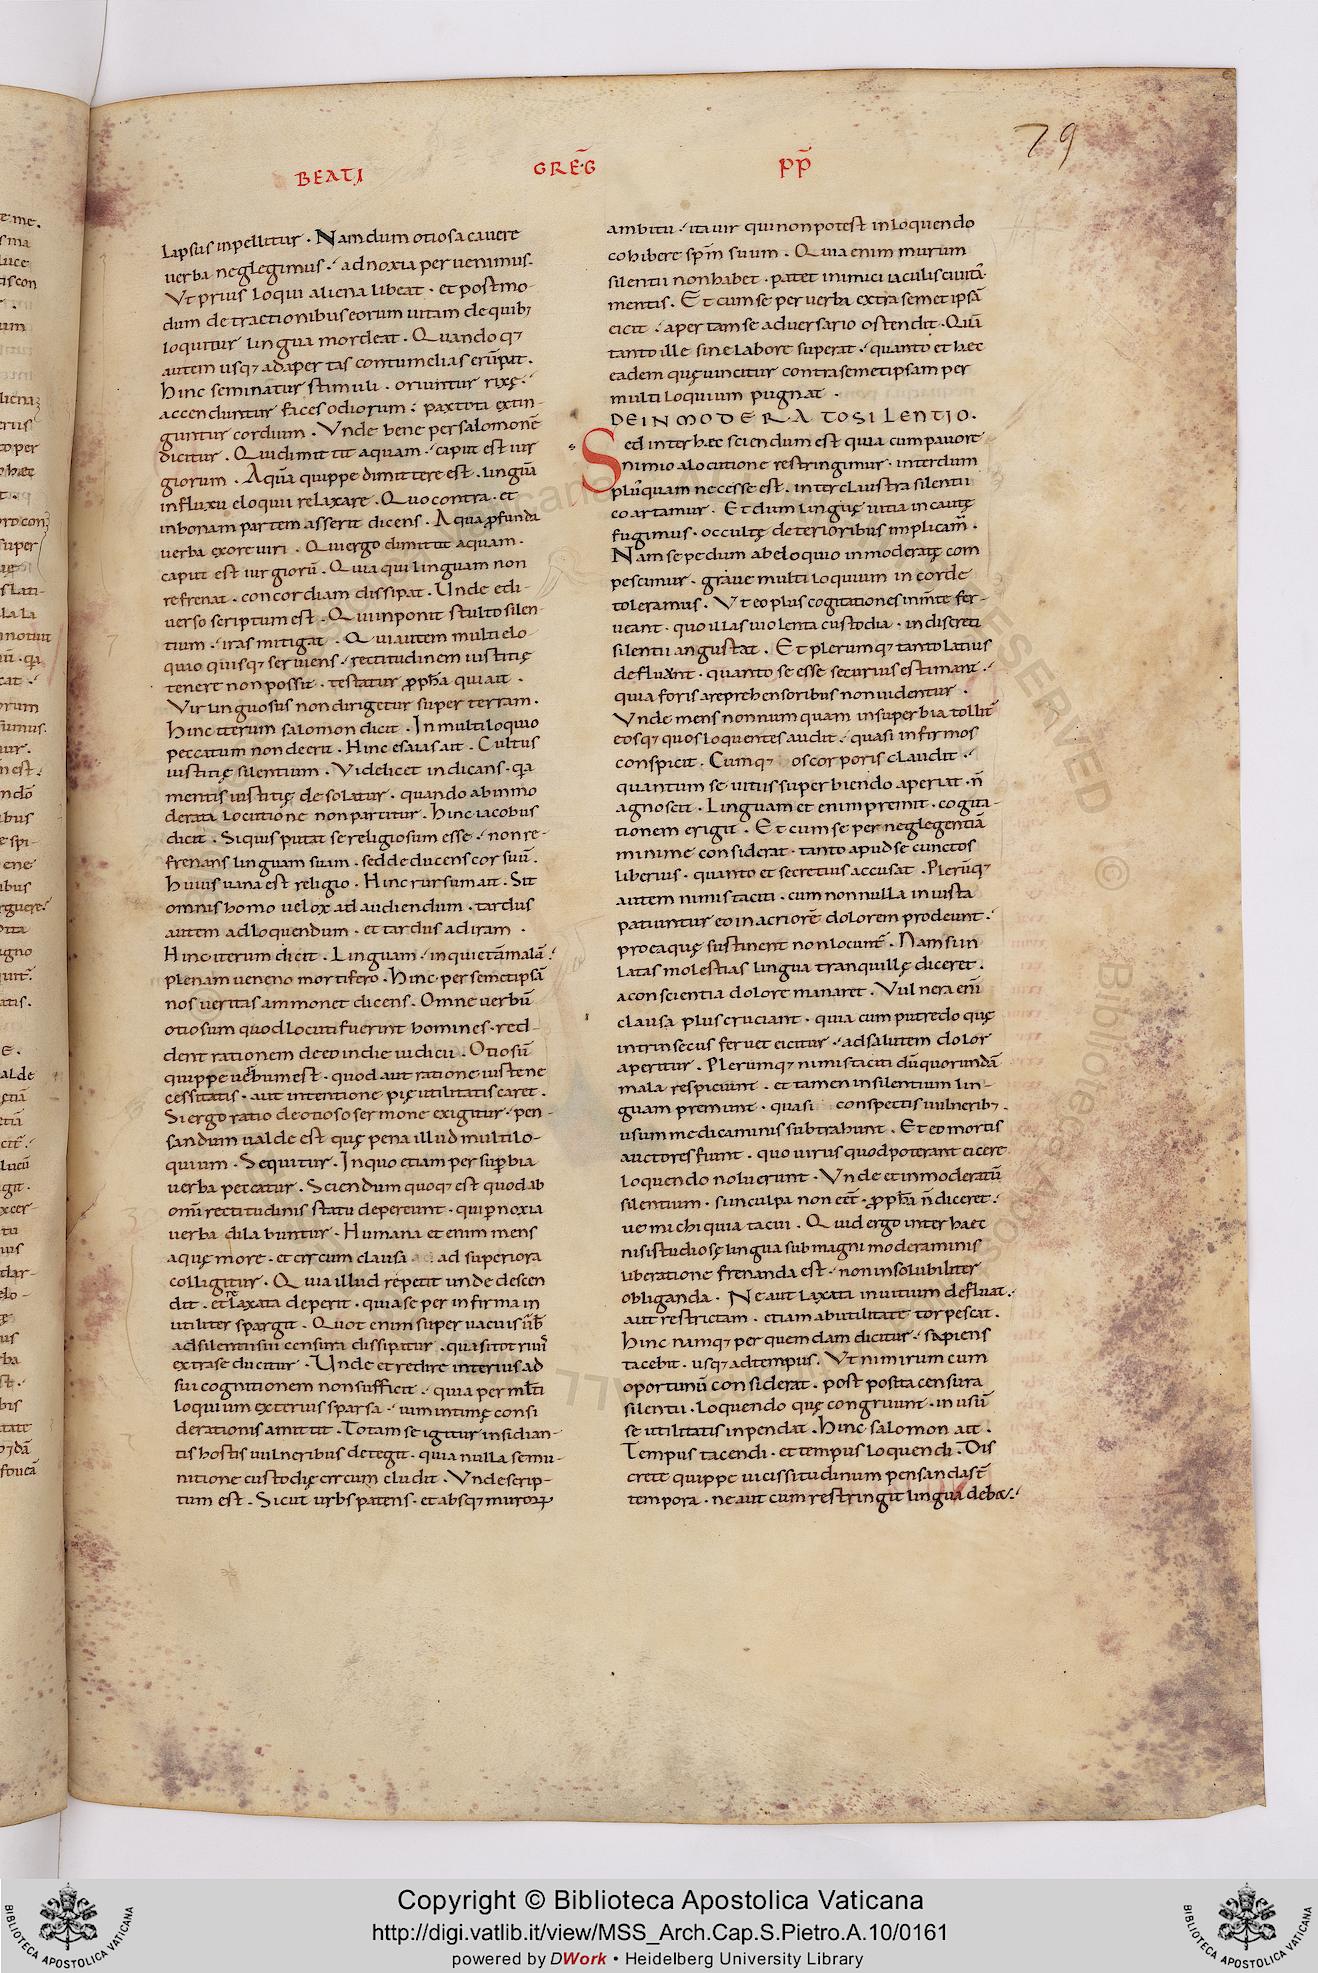 79
BEATI GREG̅ PP̅
lapsus inpellitur · Nam dum otiosa cavere
verba neglegimus · ad noxia pervenimus.
Ut prius loqui aliena libeat · et postmo-
dum detractionibus eorum vitam de quib;
loquitur lingua mordeat · Quandoq;
autem usq; ad apertas contumelias erūpat.
Hinc seminantur stimuli · oriuntur rixę ·
accenduntur faces odiorum · pax toti extin-
guntur cordium · Unde bene per salomonē
dicitur · Qui dimittit aquam · caput est iur
giorum · Aquā quippe dimittere est · linguā
in fluxu eloquii relaxare · Quo contra · et
in bonam partem asserit dicens · Aqua ꝓfunda
verba ex ore viri · Qui ergo dimittit aquam ·
caput est iurgiorū · Quia qui linguam non
refrenat · concordiam dissipat · Unde edi-
verso scriptum est · Qui inponit stulto silen-
tium · iras mitigat · Qui autem multi elo-
quio quisq; serviens · rectitudinem iustitię
tenere non possit · testatur ꝓpha qui ait ·
Vir linguosus non dirigetur super terram.
Hinc iterum salomon dicit · In multiloquio
peccatum non deerit · Hinc esaias ait · Cultus
iustitię silentium · Videlicet indicans · qa
mentis iustitię desolatur · quando ab inmo
derata locutione non partitur · Hinc iacobus
dicit · Si quis putat se religiosum esse · non re-
frenans linguam suam · sed deducens cor suū.
huius vana est religio · Hinc rursum ait · Sit
omnis homo velox ad audiendum · tardus
autem ad loquendum · et tardus ad iram ·
Hinc iterum dicit · Linguam · inquietā malā ·
plenam veneno mortifero · Hinc per semetipsā
nos veritas ammonet dicens · Omne verbū
otiosum quod locuti fuerint homines · red-
dent rationem de eo in die iudicii · Otiosū
quippe verbum est · quod aut ratione iustę ne
cessitatis · aut intentione pię utilitatis caret ·
Si ergo ratio de otioso sermone exigitur · pen-
sandum valde est quę pena illud multilo-
quium · Sequitur · In quo etiam per supbia
verba peccatur · Sciendum quoq; est quod ab
omi rectitudinis statu depereunt · qui p noxia
verba dilabuntur · Humana etenim mens
aquę more · et circum clausa ad superiora
colligitur · Quia illud repetit unde descen
dit · et relaxata deperit · quia se per infirma in
utiliter spargit · Quot enim supervacuis ūb
ad silentii sui censura dissipatur · quasi tot riuī
extra se ducitur · Unde et redire interius ad
sui cognitionem non sufficit · quia per mlti
loquium exterius sparsa · vim intimę consi
derationis amittit · Totam se igitur insidian-
tis hostis vulneribus detegit · quia nulla se mu-
nitione custodię circum cludit · Unde scrip-
tum est · Sicut urbs patens · et absq; murorꝝ
ambitu · ita vir qui non potest in loquendo
cohibere spm suum · Quia enim murum
silentii non habet · patet inimici iaculis civitā
mentis · Et cum se per verba extra semetipsā
eicit · apertam se adversario ostendit · Quā
tanto ille sine labore superat · quanto et hęc
eadem quę vincitur contra semetipsam per
multiloquium pugnat ·
DE INMODERATO SILENTIO.
Sed inter hęc sciendum est quia cum pavore
nimio a locutione restringimur · interdum
plus quam necesse est · inter claustra silentii
coartamur · Et dum linguę vitia incautę
fugimus · occultę deterioribus implicam̄ ·
Nam sepe dum ab eloquio inmoderatę com
pescimur · grave multiloquium in corde
toleramus · Ut eo plus cogitationes in mte fer-
veant · quo illas violenta custodia · indiscreti
silentii angustat · Et plerumq; tanto latius
defluunt · quanto se esse securius estimant ·
quia foris a reprehensoribus non videntur ·
Unde mens nonnumquam in superbia tollit̄
eosq; quos loquentes audit · quasi infirmos
conspicit · Cumq; os corporis claudit ·
quantum se vitiis superbiendo aperiat · n̄
agnoscit · Linguam etenim premit · cogita-
tionem erigit · Et cum se per neglegentiā
minime considerat · tanto apud se cunctos
liberius · quanto et secretius accusat · Plerūq;
autem nimis taciti · cum nonnulla iniusta
patiuntur eo in acriorē dolorem prodeunt ·
pro ea quę sustinent non locunt̄ · Nam si in
latas molestias lingua tranquillę diceret ·
a conscientia dolore manaret · Vulnera eni
clausa plus cruciant · quia cum putredo quę
intrinsecus fervet eicitur · ad salutem dolor
aperitur · Plerumq; nimis taciti dū quorundā
mala respiciunt · et tamen in silentium lin-
guam premunt · quasi conspectis vulnerib; ·
usum medicaminis subtrahunt · Et eo mortis
auctores fiunt · quo virus quod poterant eicere
loquendo noluerunt · Unde et inmoderatū
silentium · si in culpa non eēt · ꝓpha n̄ diceret ·
ve michi quia tacui · Quid ergo inter haec
nisi studiosę lingua sub magni moderaminis
liberatione frenanda est · non insolubiliter
obliganda · Ne aut laxata in vitium defluat ·
aut restrictam · etiam ab utilitate torpescat ·
Hinc namq; per quemdam dicitur · sapiens
tacebit · usq; ad tempus · Ut nimirum cum
oportunū considerat · post posita censura
silentii · loquendo quę congruunt · in usū
se utilitatis inpendat · Hinc salomon ait ·
Tempus tacendi · et tempus loquendi · Dis
crete quippe vicissitudinum pensanda st̄
tempora · ne aut cum restringi lingua debet ·
Copyright © Biblioteca Apostolica Vaticana
http://digi.vatlib.it/view/MSS_Arch.Cap.S.Pietro.A.10/0161
powered by DWork • Heidelberg University Library
BIBLIOTECA APOSTOLICA VATICANA
BIBLIOTECA APOSTOLICA VATICANA